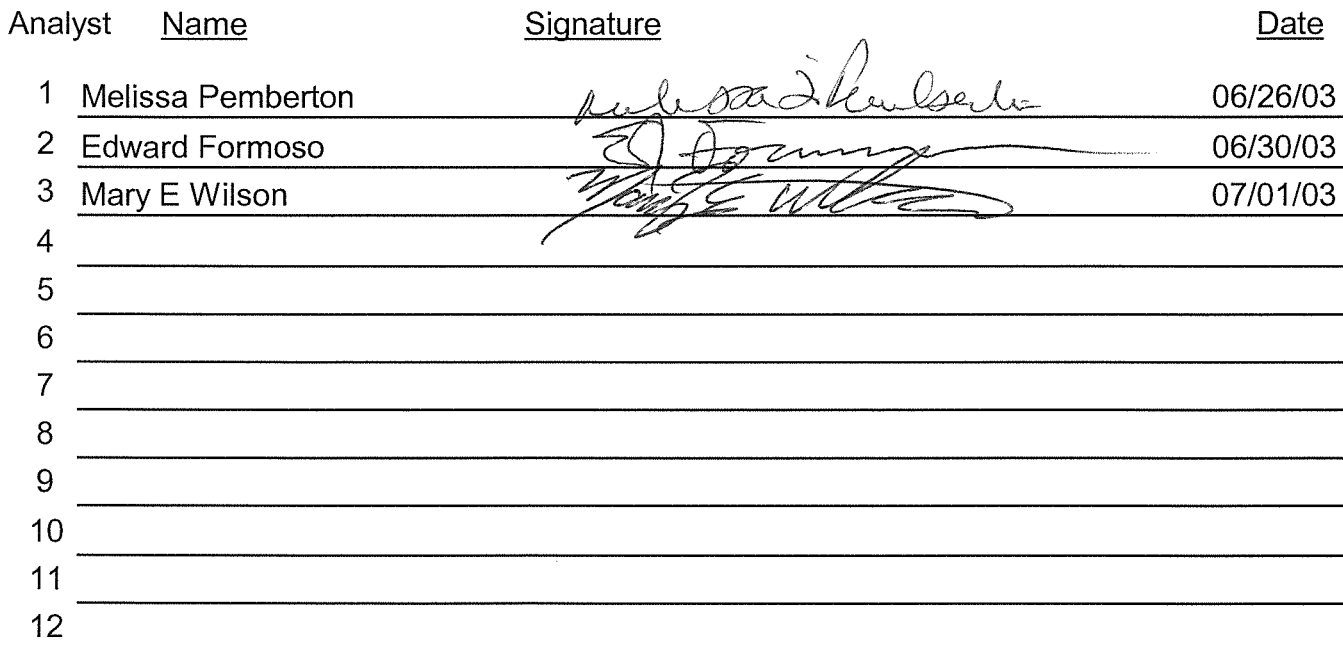 Analyst Name Signature Date
1 Melissa Pemberton 06/26/03
2 Edward Formoso 06/30/03
3 Mary E Wilson Mary E Wilson 07/01/03
4
5
6
7
8
9
10
11
12